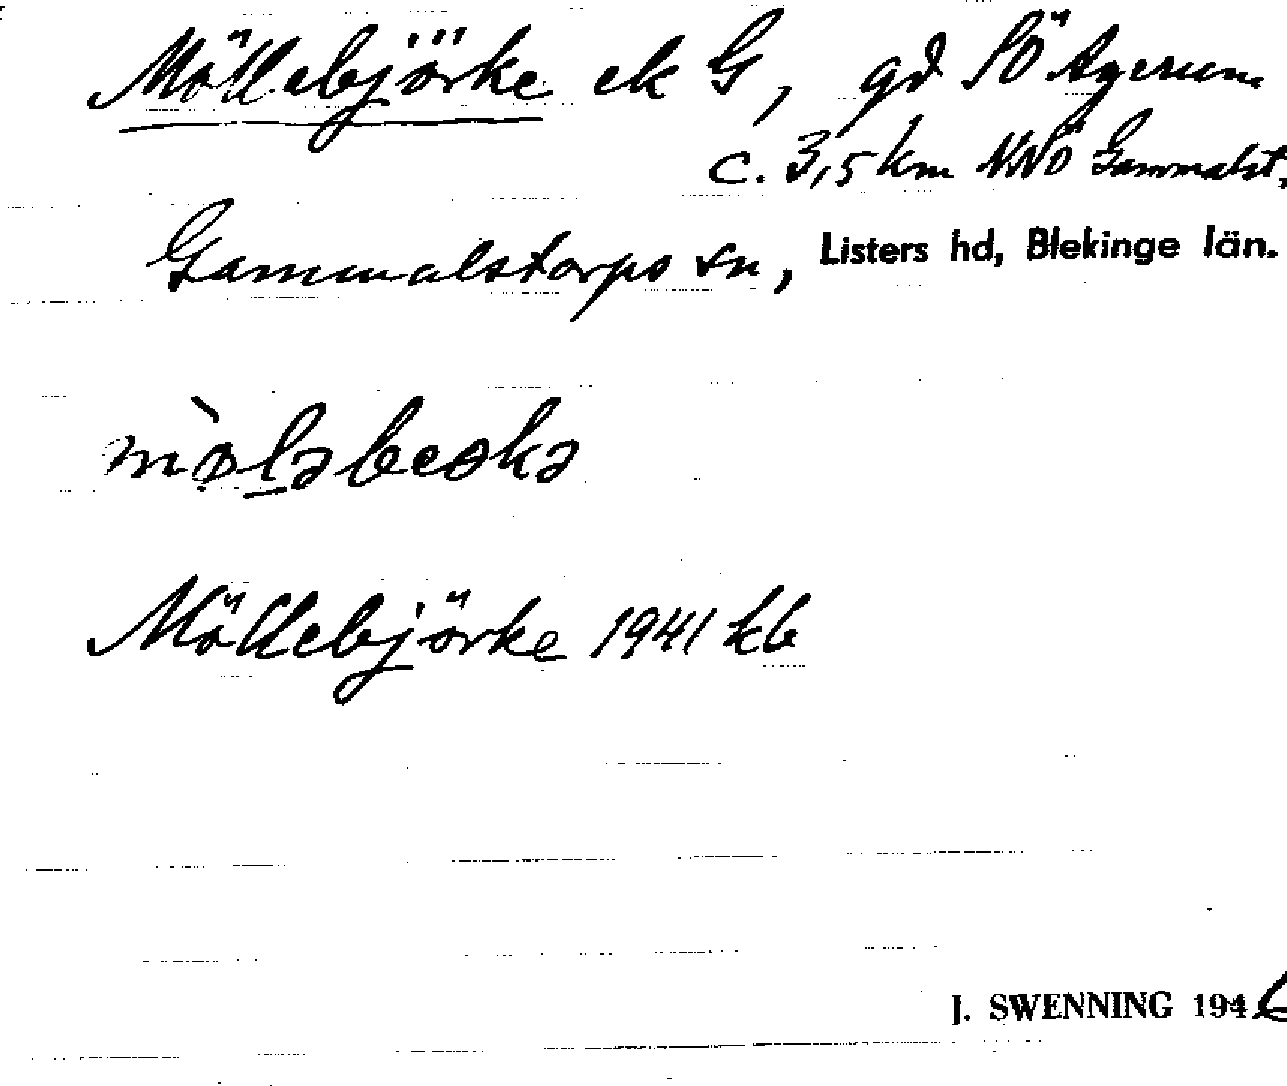 Möllebjörke ek G, gd SÖ Agerum
c. 3,5 km NNÖ Gammalst.
Gammalstorps sn, Listers hd, Blekinge län.
Möllebjörke 1941 kb
J. SWENNING 1946